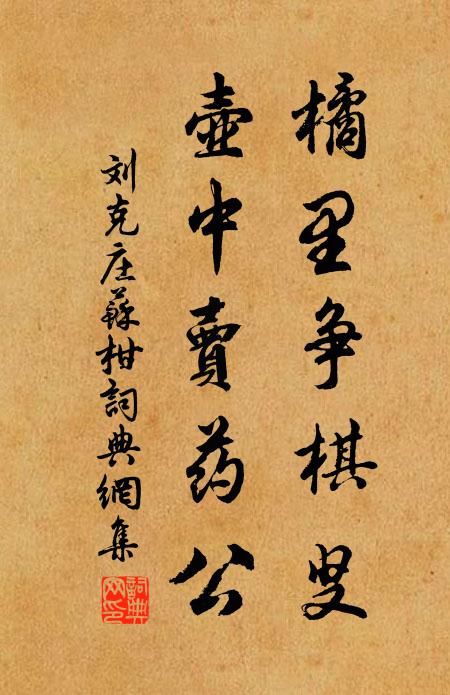 橘里争棋叟
壺中賣药公
刘克庄蘇柑詞典網集
詞典网印